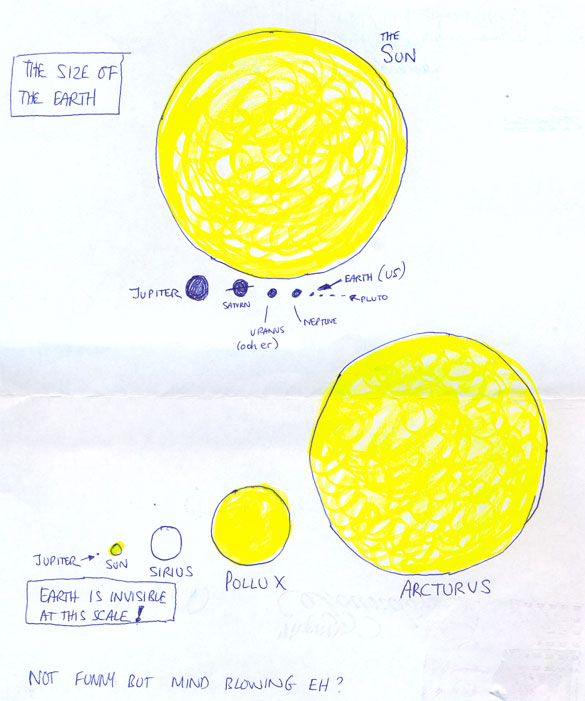 THE SIZE OF
THE EARTH
THE
SUN
JUPITER
SATURN
URANUS
(och er)
NEPTUNE
EARTH (US)
PLUTO
JUPITER
SUN
SIRIUS
POLLUX
ARCTURUS
EARTH IS INVISIBLE
AT THIS SCALE!
NOT FUNNY BUT MIND BLOWING EH?